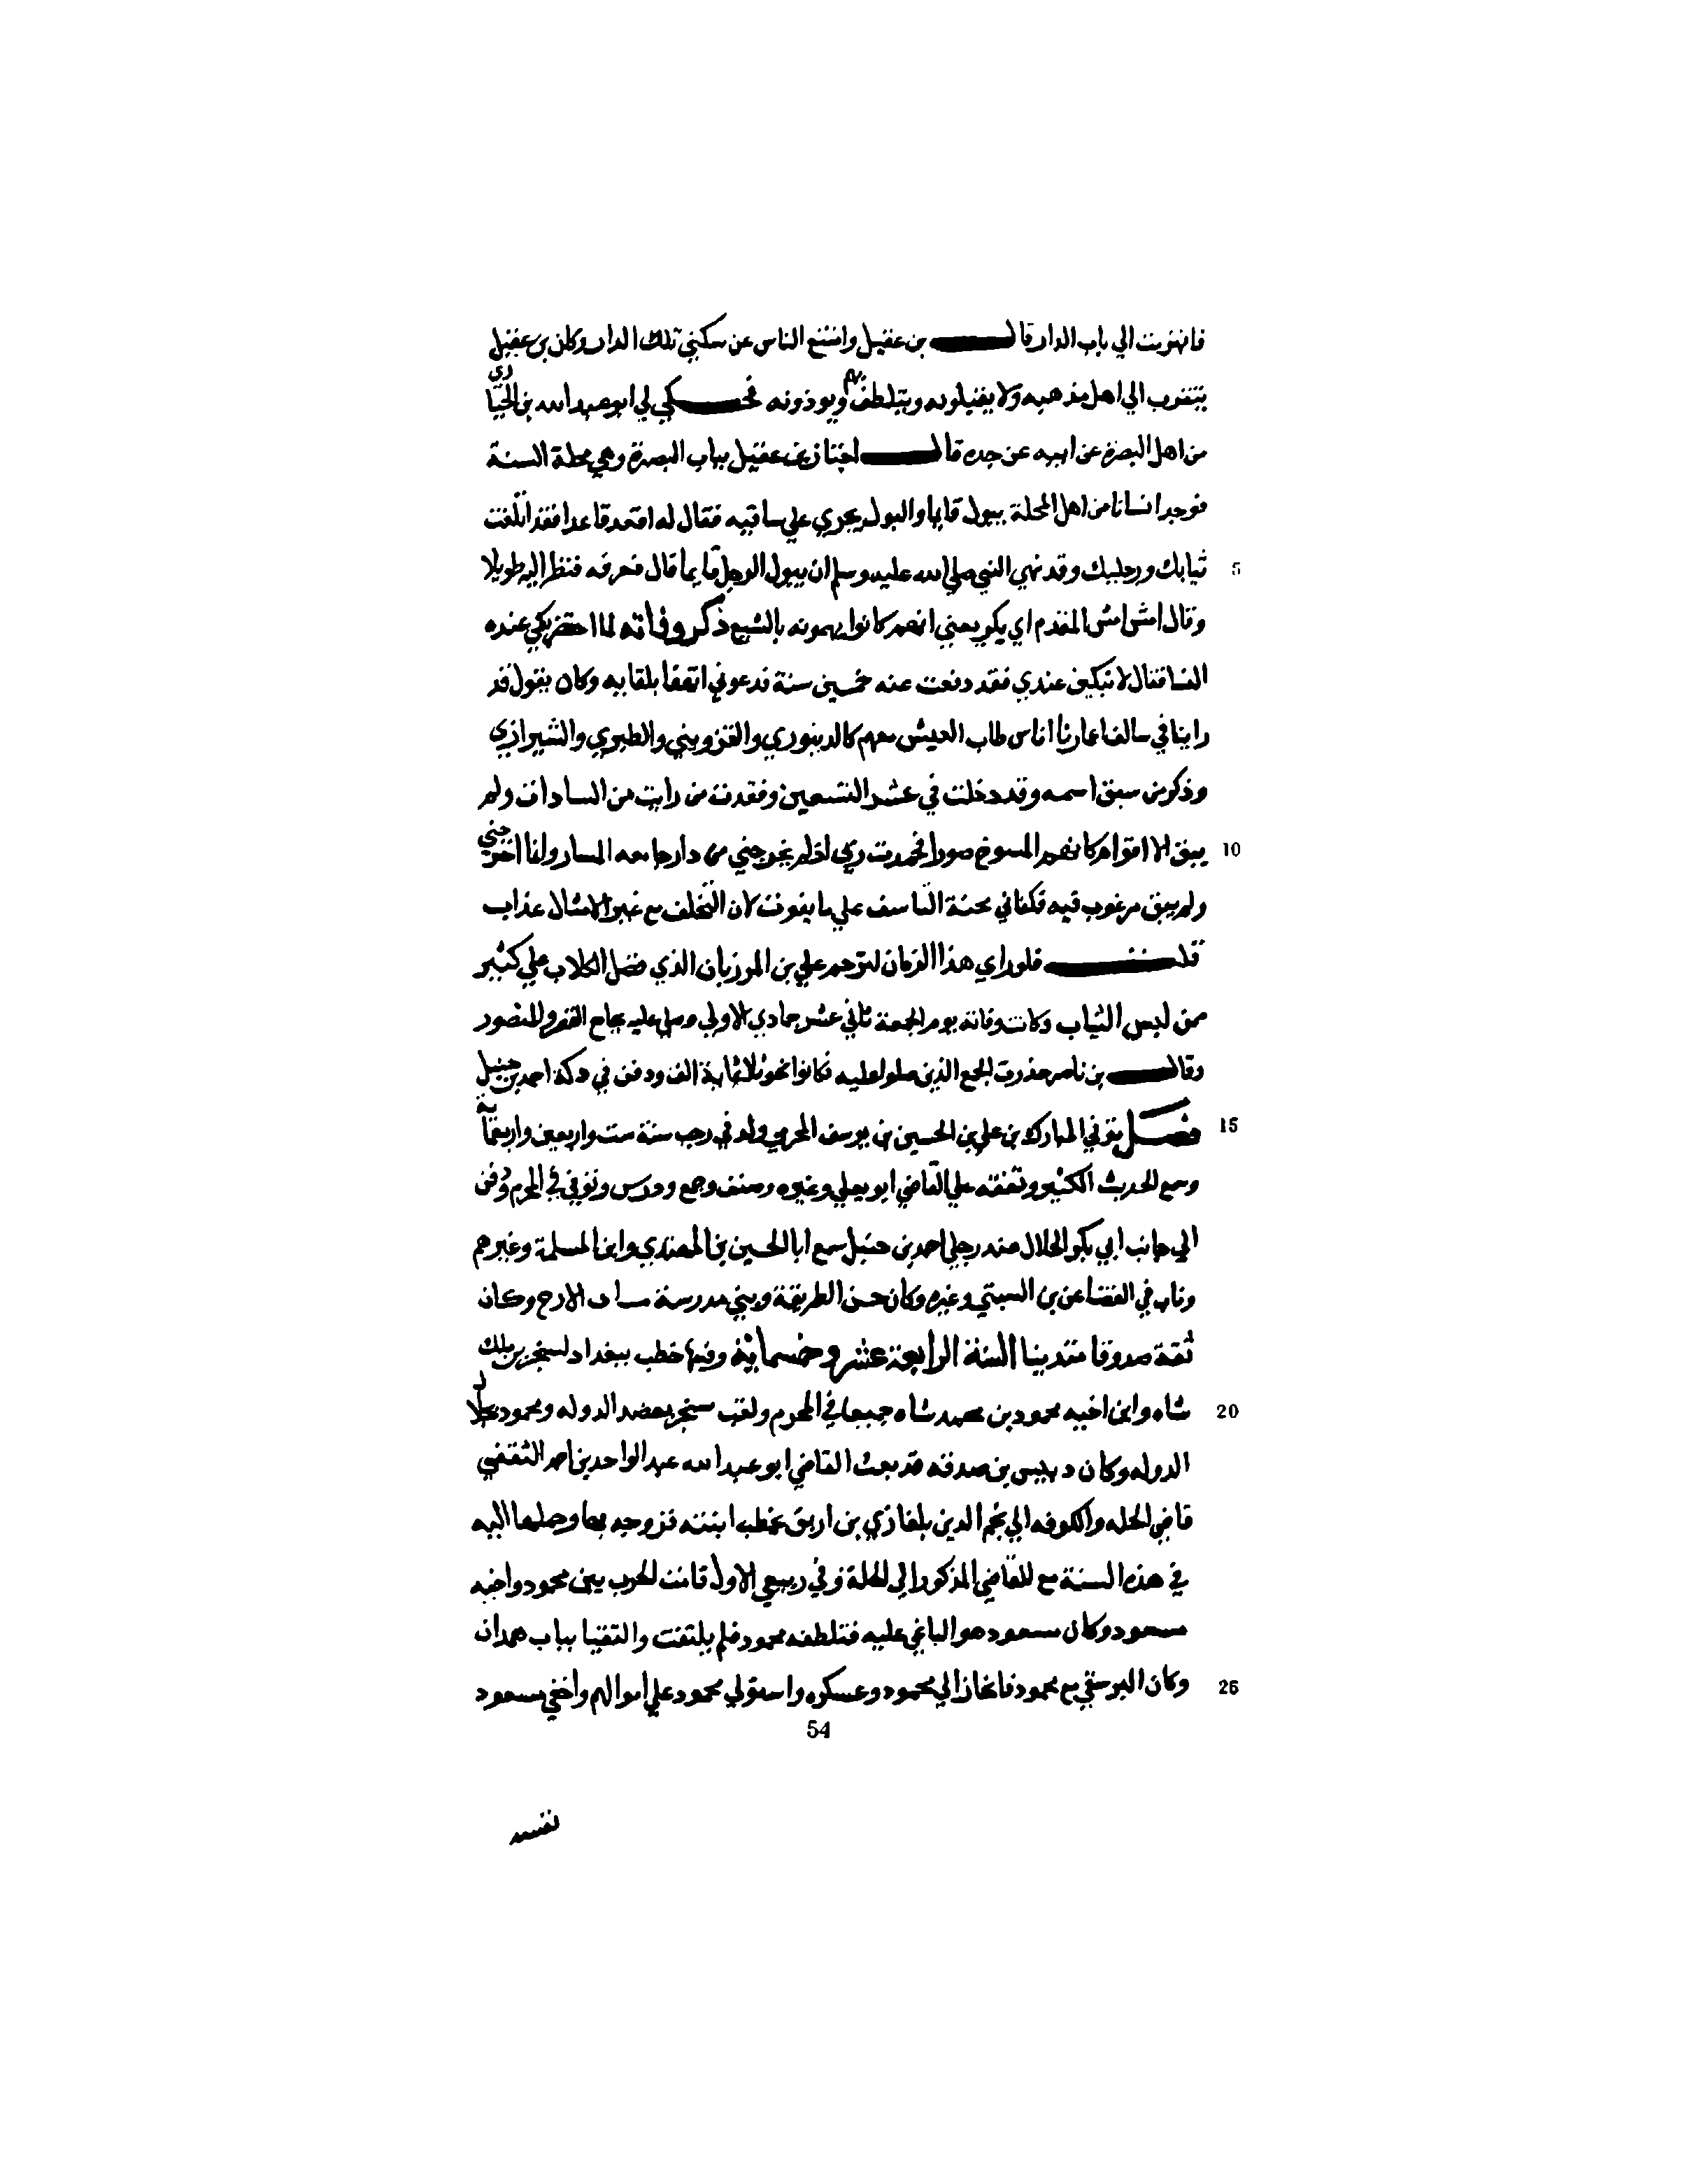 فانهزمت الي باب الدار قال بن عقيل وامتنع الناس عن سكني تلك الدار وكان بن عقيل
يتقرب الي اهل مذهبه ولا يقبلونه ويتلطف بهم ويوذونه فحكي لي ابو عبد الله بن
من اهل البصرة عن ابيه عن جده قال اجتاز بن عقيل بباب البصرة وهي محلة السنة
فوجد انسانا من اهل المحلة يبول قايما والبول يجري علي ساقيه فقال له اقعد قاعدا فقد اتلفت
5 ثيابك ورجليك وقد نهي النبي صلي الله عليه وسلم ان يبول الرجل قايما قال فعرفه فنظر اليه طويلا
وقال امش امش المقدم اي بكر يعني انهم كانوا يتهمونه بالتشيع ذكر وفاته لما احتضر بكي عنده
النسا فقال لا تبكين عندي فقد وقعت عنه خمسين سنة فدعوني اتهنا بلقايه وكان يقول قد
راينا في سالف اعمارنا اناس طاب العيش معهم كالدينوري والقزويني والطبري والشيرازي
وذكر من سبق اسمه وقد دخلت في عشر التسعين وفقدت من رايت من السادات ولم
10 يبق الا اقوام كانهم المسوخ صورا فحمدت ربي اذ لم يخرجني من دار جامعه المسار وانما اخرجني
ولم يبق مرغوب فيه فكفاني محنة التاسف علي ما يفوت لان التخلف مع غير الامثال عذاب
قلت فلو راي هذا الزمان لترحم علي بن المرزبان الذي فضل الكلاب علي كثير
ممن لبس الثياب وكانت وفاته يوم الجمعة ثاني عشر جمادي الاولي وصلي عليه بجامع القصر والمنصور
وقال بن ناصر حذرت الجمع الذين صلوا عليه فكانوا نحو ثلاثماية الف ودفن في دكة احمد بن حنبل
15 فصل توفي المبارك بن علي بن الحسين بن يوسف المحرمي ولد في رجب سنة ست واربعين واربعماية
وسمع الحديث الكثير وتفقه علي القاضي ابو يعلي وغيره وصنف وجمع ودرس وتوفي في المحرم ودفن
الي جانب ابي بكر الخلال عند رجلي احمد بن حنبل سمع ابا الحسين بن المهتدي وابن المسلمة وغيرهم
وناب في القضا عن بن السبتي وغيره وكان حسن الطريقة وبني مدرسة بباب الازج وكان
ثقة صدوقا متدينا السنة الرابعة عشر وخمسماية وفيها خطب ببغداد لسنجر بن ملك
20 شاه وابن اخيه محمود بن محمد شاه جميعا في المحرم ولقب سنجر بعضد الدوله ومحمود بجلال
الدوله وكان دبيس بن صدقه قد بعث القاضي ابو عبد الله عبد الواحد بن احمد الثقفي
قاضي الحله والكوفه الي نجم الدين بلغازي بن ارتق يخطب ابنته فزوجه بها وحملها اليه
في هذه السنة مع القاضي المذكور الي الحلة وفي ربيع الاول قامت الحرب بين محمود واخيه
مسعود وكان مسعود هو الباغي عليه فتلطفه محمود فلم يلتفت والتقيا بباب همدان
25 وكان البرسقي مع محمود فانحاز الي محمود وعسكره واستولي محمود علي اموالهم واخفي مسعود
54
نفسه